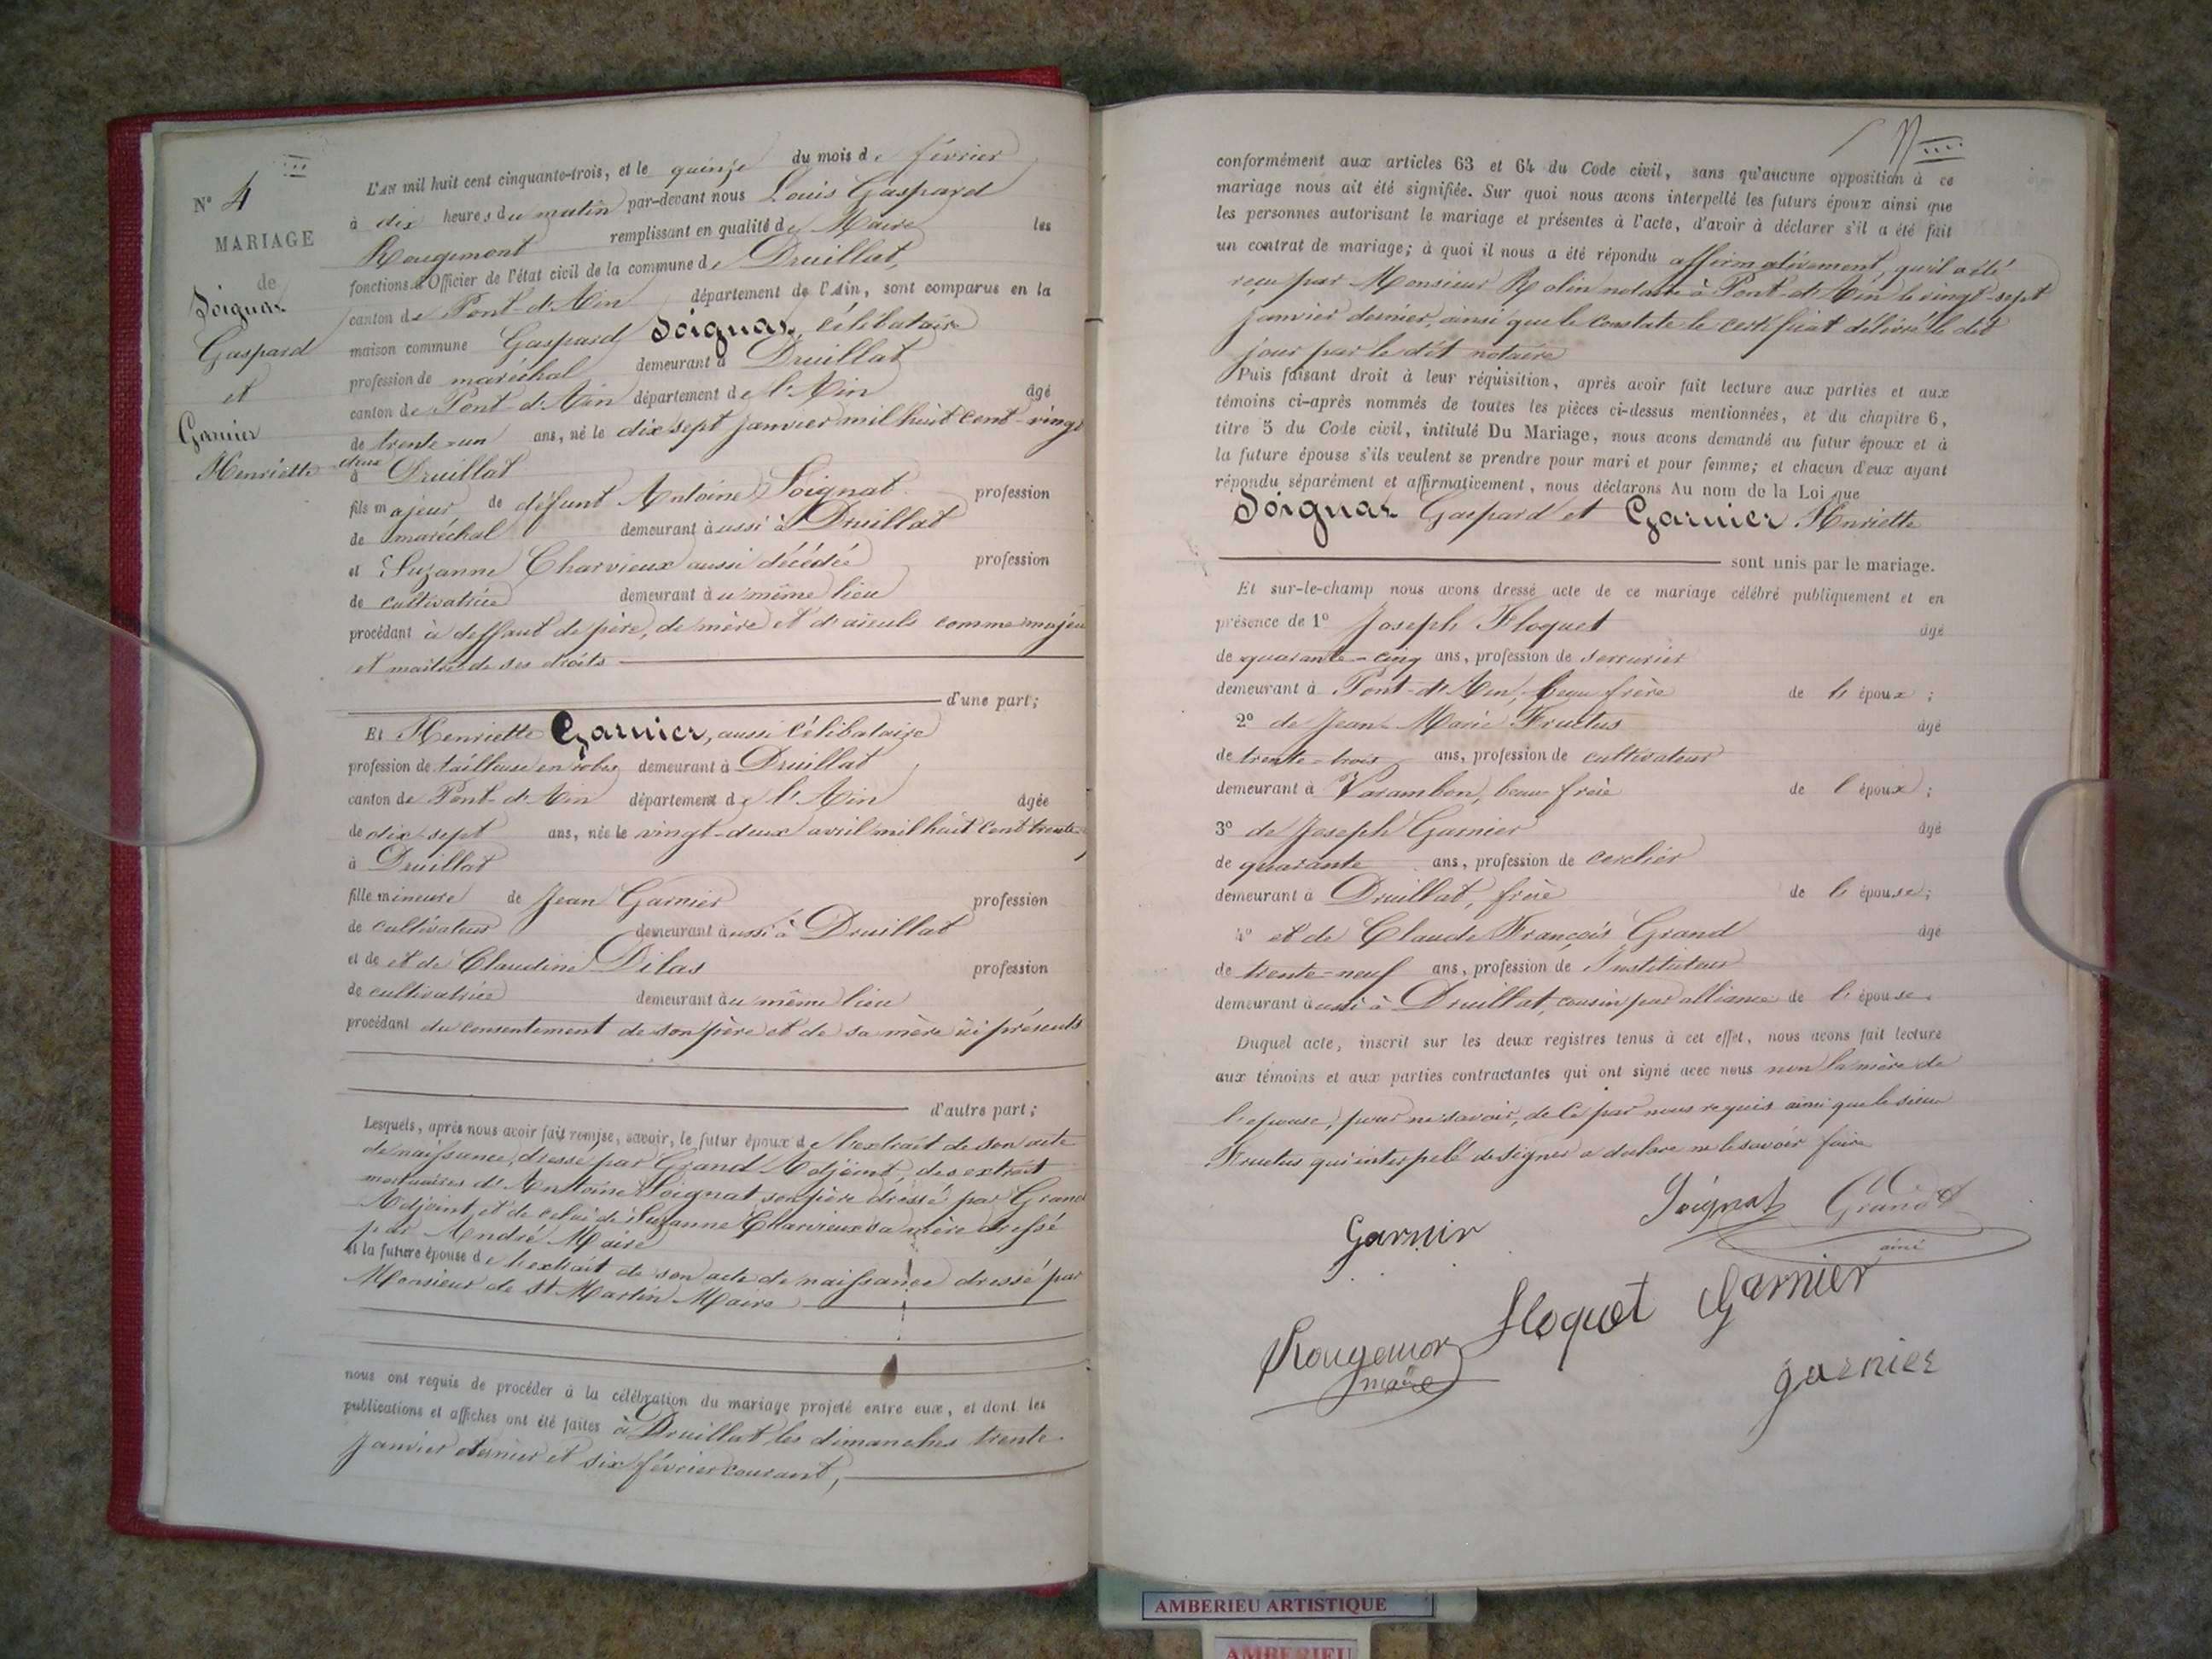 N° 4
MARIAGE
de
Soignat
Gaspard
et
Garnier
Henriette
L'AN mil huit cent cinquante-trois, et le quinze du mois de février
à dix heures du matin par-devant nous Louis Gaspard
Rougemont remplissant en qualité de Maire les
fonctions d'Officier de l'état civil de la commune de Druillat,
canton de Pont-d'Ain département de l'Ain, sont comparus en la
maison commune Gaspard Soignat, célibataire
profession de maréchal demeurant à Druillat
canton de Pont-d'Ain département de l'Ain âgé
de trente-un ans, né le dix sept janvier mil huit cent vingt
deux
à Druillat
fils majeur de défunt Antoine Soignat profession
de maréchal demeurant aussi à Druillat
et Suzanne Charvieux aussi décédée profession
de cultivatrice demeurant au même lieu
procédant à deffaut de père, de mère et d'aieuls comme majeu
et maître de ses droits
d'une part;
Et Henriette Garnier, aussi célibataire
profession de tailleuse en robes demeurant à Druillat
canton de Pont-d'Ain département de l'Ain âgée
de dix-sept ans, née le vingt-deux avril mil huit cent trente
à Druillat
fille mineure de Jean Garnier profession
de cultivateur demeurant aussi à Druillat
et de et de Claudine Dilas profession
de cultivatrice demeurant au même lieu
procédant du consentement de son père et de sa mère ici présents
d'autre part;
Lesquels, après nous avoir fait remise, savoir, le futur époux de l'extrait de son acte
de naissance, dressé par Grand Adjoint, des extrait
mortuaires d'Antoine Soignat son père dressé par Grand
Adjoint, et de celui de Suzanne Charvieux sa mère dressé
par André Maire
et la future épouse de l'extrait de son acte de naissance dressé par
Monsieur de St Martin Maire
nous ont requis de procéder à la célébration du mariage projeté entre eux, et dont les
publications et affiches ont été faites à Druillat les dimanches trente
janvier dernier et six février courant,
conformément aux articles 63 et 64 du Code civil, sans qu'aucune opposition à ce
mariage nous ait été signifiée. Sur quoi nous avons interpellé les futurs époux ainsi que
les personnes autorisant le mariage et présentes à l'acte, d'avoir à déclarer s'il a été fait
un contrat de mariage; à quoi il nous a été répondu affirmativement, qu'il a été
reçu par Monsieur Rolin notaire à Pont-d'Ain le vingt-sept
janvier dernier, ainsi que le constate le certificat délivré le dit
jour par le dit notaire
Puis faisant droit à leur réquisition, après avoir fait lecture aux parties et aux
témoins ci-après nommés de toutes les pièces ci-dessus mentionnées, et du chapitre 6,
titre 5 du Code civil, intitulé Du Mariage, nous avons demandé au futur époux et à
la future épouse s'ils veulent se prendre pour mari et pour femme; et chacun d'eux ayant
répondu séparément et affirmativement, nous déclarons Au nom de la Loi que
Soignat Gaspard et Garnier Henriette
sont unis par le mariage.
Et sur-le-champ nous avons dressé acte de ce mariage célébré publiquement et en
présence de 1° Joseph Floquet âgé
de quarante-cinq ans, profession de serrurier
demeurant à Pont-d'Ain, beau frère de l'époux;
2° de Jean-Marie Fructus âgé
de trente-trois ans, profession de cultivateur
demeurant à Varambon, beau-frère de l'époux;
3° de Joseph Garnier âgé
de quarante ans, profession de cerclier
demeurant à Druillat, frère de l'épouse;
4° et de Claude François Grand âgé
de trente-neuf ans, profession de Instituteur
demeurant aussi à Druillat, cousin par alliance de l'épouse.
Duquel acte, inscrit sur les deux registres tenus à cet effet, nous avons fait lecture
aux témoins et aux parties contractantes qui ont signé avec nous non la mère de
l'epouse, pour ne savoir, de ce par nous requis ainsi que le sieur
Fructus qui interpelé de signer a déclaré ne le savoir faire
Soignat Grand
Garnir
ainé
Floquet Garnier
Rougemon
maire
garnier
AMBERIEU ARTISTIQUE
AMBERIEU